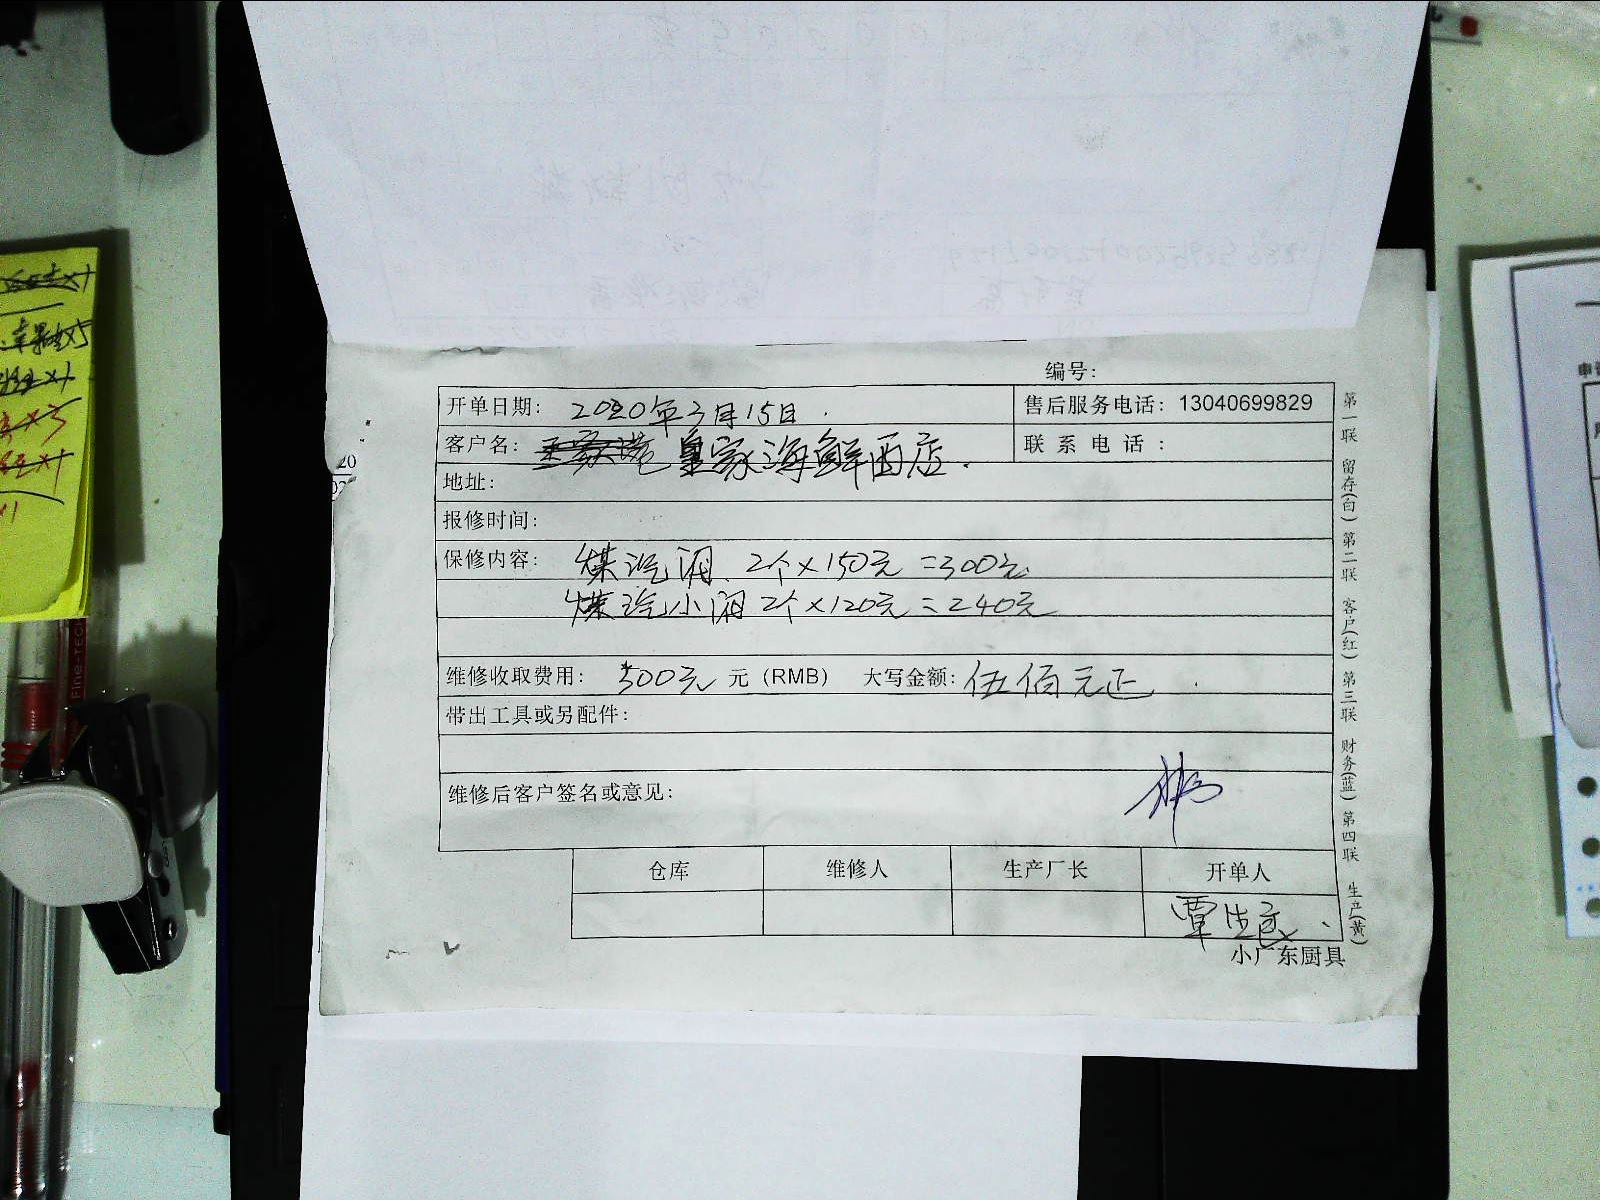 编号：
开单日期： 2020年3月15日
售后服务电话：13040699829
客户名： 皇家海鲜酒店
联系电话：
地址：
报修时间：
保修内容： 煤汽阀 2个×150元=300元
煤汽小阀 2个×120元=240元
维修收取费用： 500元 元（RMB） 大写金额：伍佰元正
带出工具或另配件：
维修后客户签名或意见：
仓库 维修人 生产厂长 开单人
小广东厨具
第一联 留存(白) 第二联 客户(红) 第三联 财务(蓝) 第四联 生产(黄)
Fine-TEC